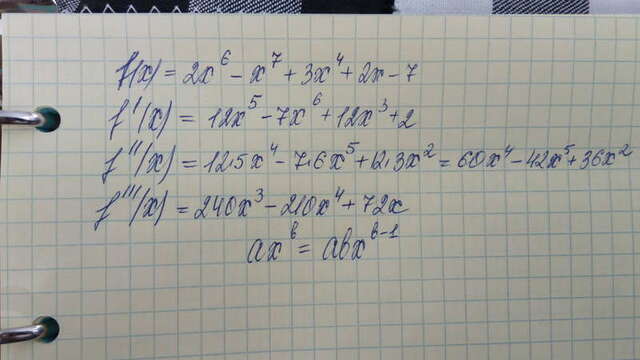 f(x) = 2x⁶ - x⁷ + 3x⁴ + 2x - 7
f'(x) = 12x⁵ - 7x⁶ + 12x³ + 2
f''(x) = 12·5x⁴ - 7·6x⁵ + 12·3x² = 60x⁴ - 42x⁵ + 36x²
f'''(x) = 240x³ - 210x⁴ + 72x
ax^b = abx^(b-1)